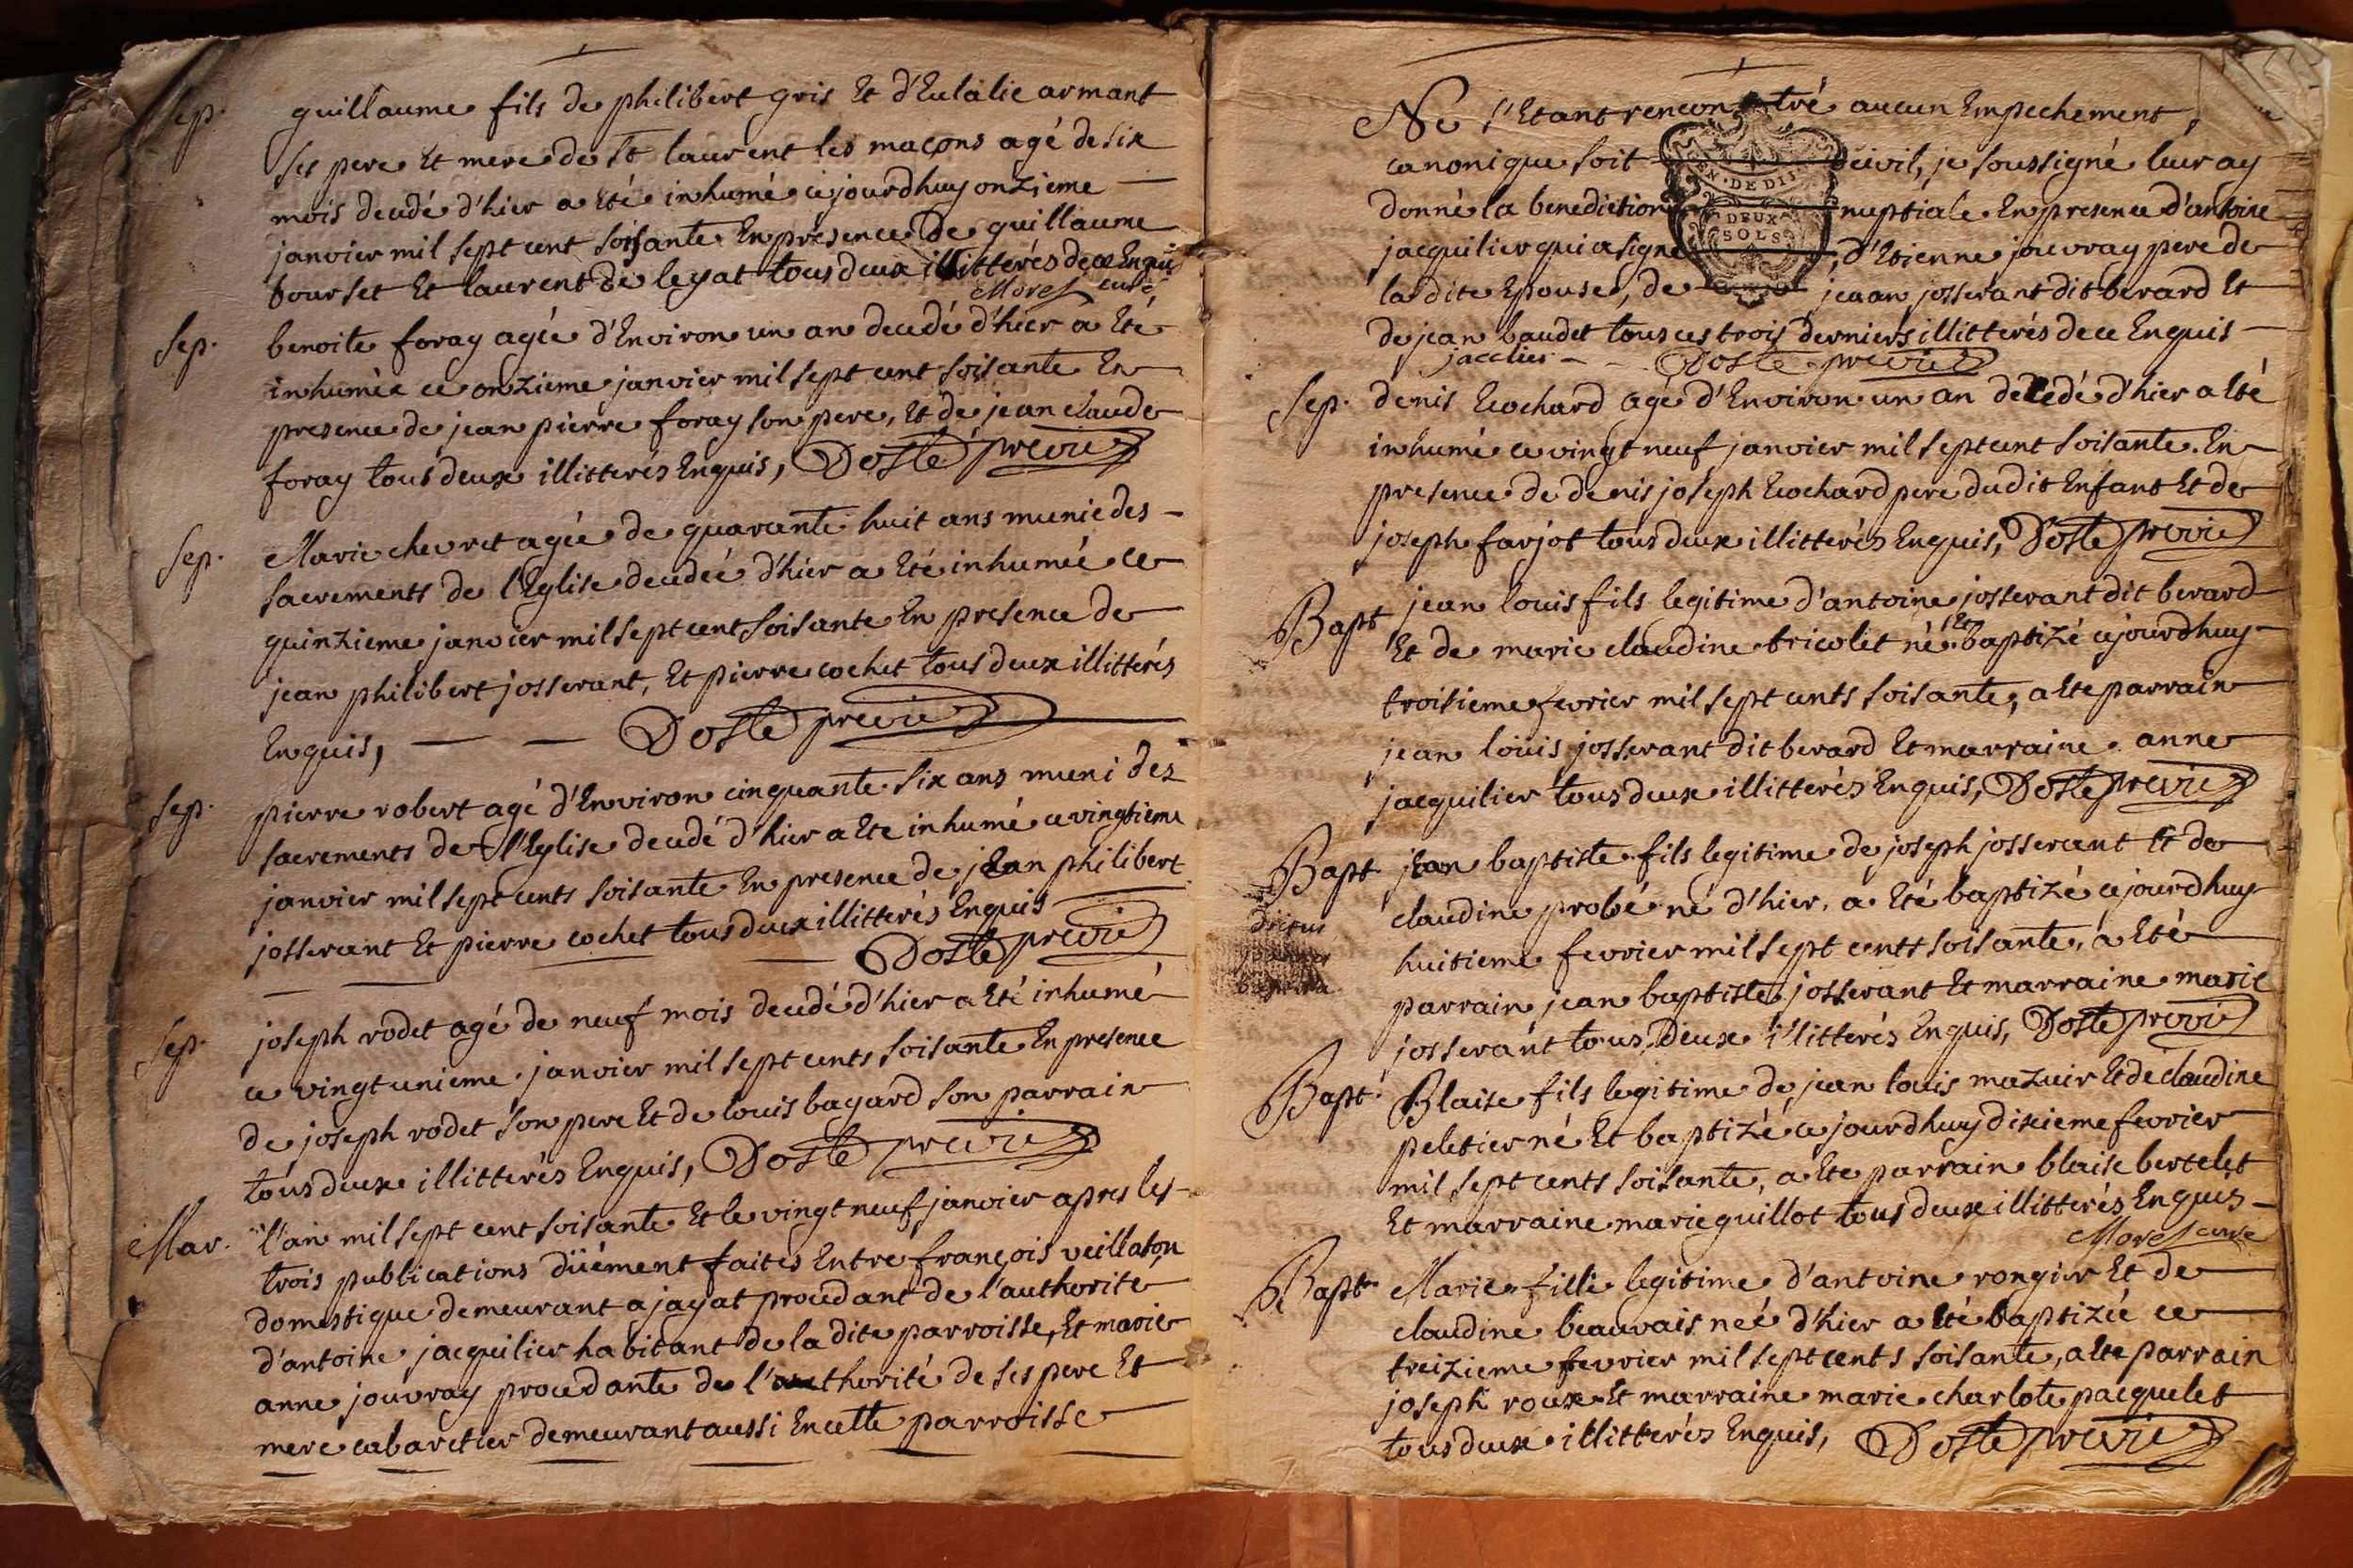 Sep. guillaume fils de philibert gris Et d'Eulalie armant
ses pere Et mere de st laurent les maçons agé de six
mois decedé d'hier a Eté inhumé cejourdhuy onzieme
janvier mil sept cent soisante En presence de guillaume
bourset Et laurent de legat tous deux illitterés de ce Enquis
Morel curé
Sep. benoite foray agée d'Environ un an decedé d'hier a Eté
inhumée ce onzieme janvier mil sept cent soisante En
presence de jean pierre foray son pere, Et de jean claude
foray tous deux illitterés Enquis, Doste previe
Sep. Marie chevret agée de quarante huit ans munie des
sacrements de l'Eglise decedée d'hier a Eté inhumée ce
quinzieme janvier mil sept cent soisante En presence de
jean philibert josserant, Et pierre cochet tous deux illitterés
Enquis, Doste previe
Sep. pierre robert agé d'Environ cinquante six ans muni des
sacrements de l'Eglise decedé d'hier a Ete inhumé ce vingtieme
janvier mil sept cents soisante En presence de jean philibert
josserant Et pierre cochet tous deux illitterés Enquis
Doste previe
Sep. joseph rodet agé de neuf mois decedé d'hier a Eté inhumé
ce vingt unieme janvier mil sept cents soisante En presence
de joseph rodet son pere Et de louis bagard son parrain
tous deux illitterés Enquis, Doste previe
Mar. l'an mil sept cent soisante Et le vingt neuf janvier apres les
trois publications düément faites Entre françois veillaton
domestique demeurant a jayat procedant de l'authorite
d'antoine jacquilier habitant de la dite parroisse, Et marie
anne jouvray procedante de l'authorité de ses pere Et
mere cabaretier demeurant aussi En cette parroisse
Ne s'Etant rencontré aucun Empechement,
canonique soit civil, je soussigné leur ay
donné la benediction nuptiale En presence d'antoine
jacquilier qui a signé, d'Etienne jouvray pere de
la dite Epouse, de jean josserant dit berard Et
de jean baudet tous ces trois derniers illitterés de ce Enquis
jacelier Doste previe
GEN. DE DIJ.
DEUX
SOLS
Sep. denis Ecochard agé d'Environ un an decedé d'hier a Eté
inhumé ce vingt neuf janvier mil sept cent soisante. En
presence de denis joseph Ecochard pere dudit Enfant Et de
joseph farjot tous deux illitterés Enquis, Doste previe
Bapt jean louis fils legitime d'antoine josserant dit berard
Et de marie claudine tricolet né Et baptizé cejourdhuy
troisieme fevrier mil sept cents soisante, a Ete parrain
jean louis josserant dit berard Et marraine anne
jacquilier tous deux illitterés Enquis, Doste previe
Bapt. jean baptiste fils legitime de joseph josserant Et de
claudine probé né d'hier, a Eté baptizé cejourdhuy
huitieme fevrier mil sept cents soisante, a Eté
parrain jean baptiste josserant Et marraine marie
josserant tous deux illitterés Enquis, Doste previe
Bapt. Blaise fils legitime de jean louis mazuir Et de claudine
peletier né Et baptizé cejourdhuy dixieme fevrier
mil sept cents soisante, a Ete parrain blaise bertelet
Et marraine marie guillot tous deux illitterés Enquis
Morel curé
Bapt. Marie fille legitime d'antoine rongier Et de
claudine beauvais neé d'hier a Eté baptizée ce
treizieme fevrier mil sept cents soisante, a Ete parrain
joseph roux Et marraine marie charlote pacquelet
tous deux illitterés Enquis, Doste previe